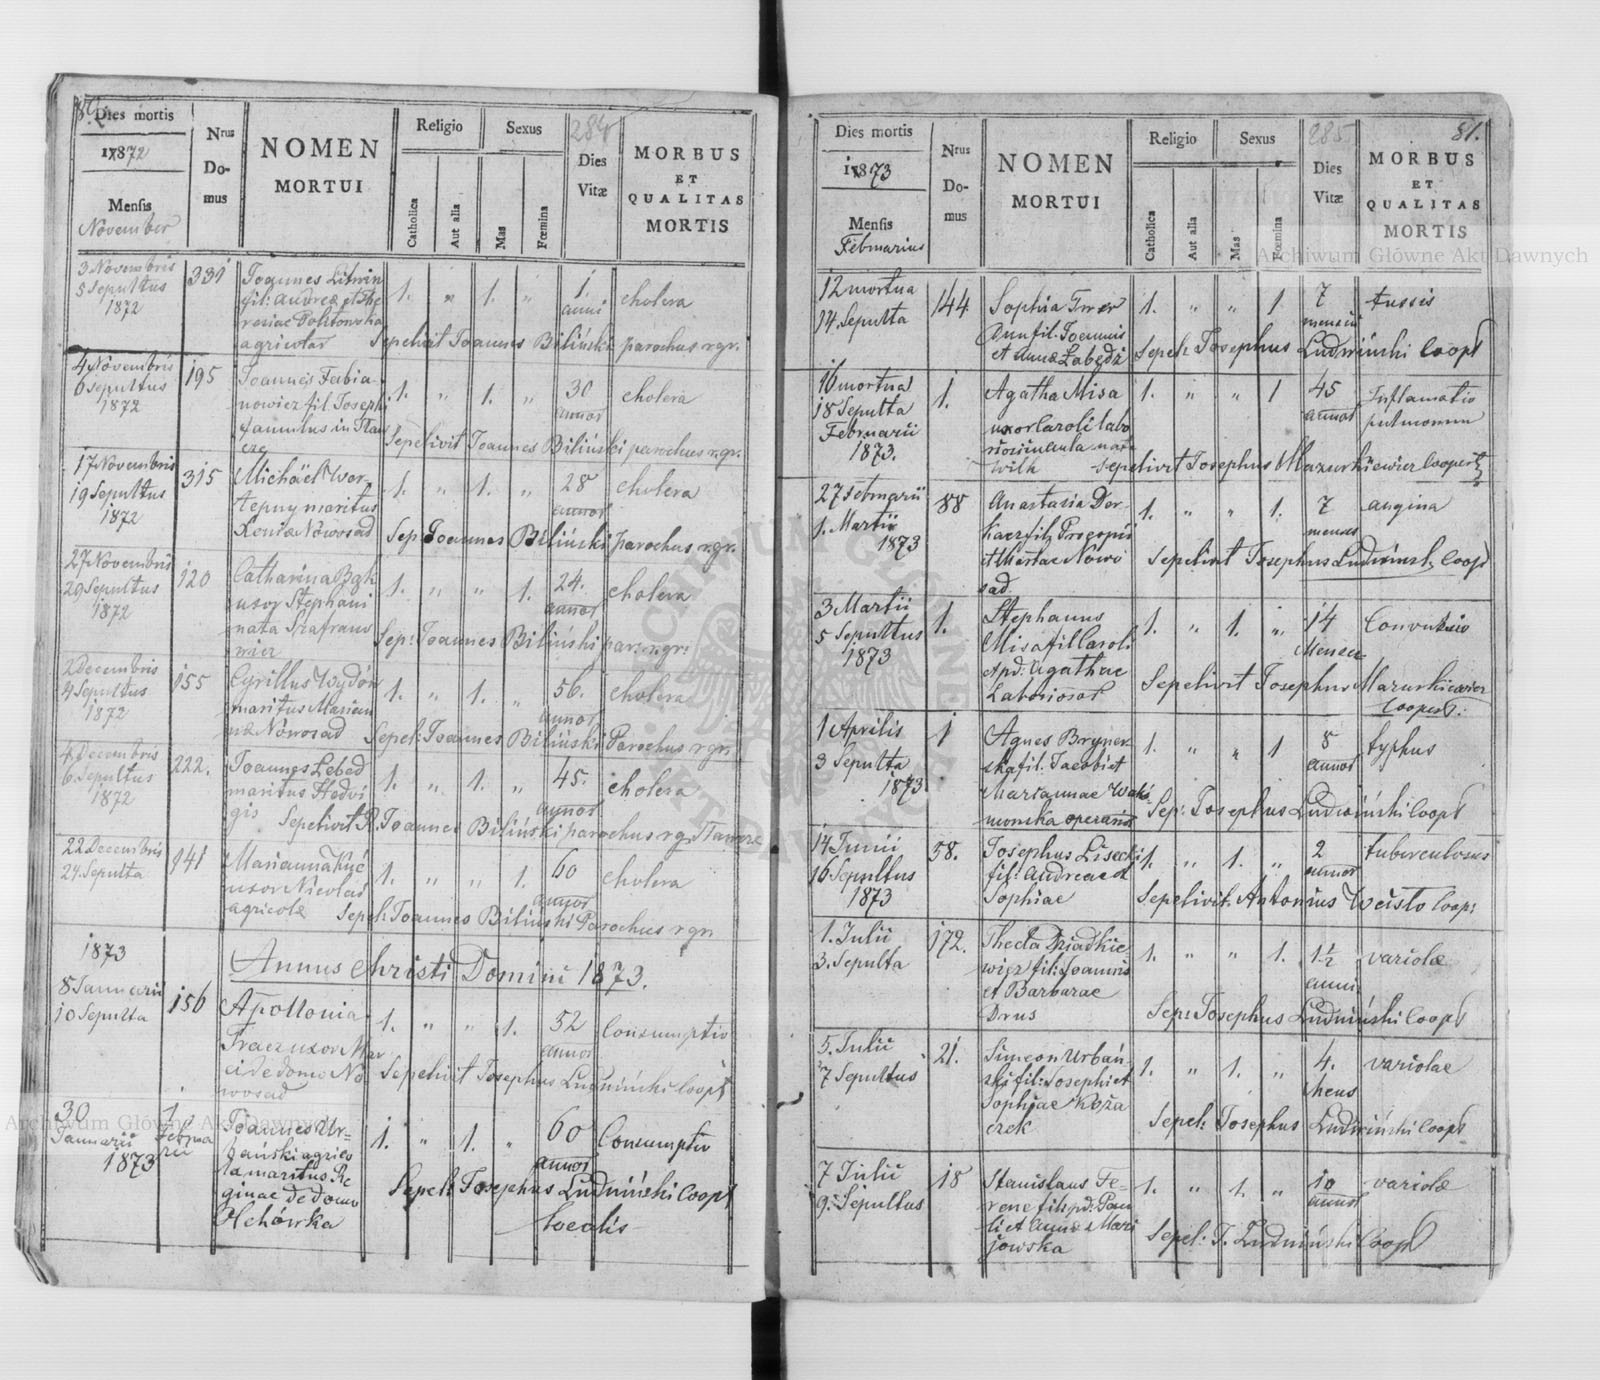 Dies mortis
1872
Mensis
November
Nrus
Do-
mus
NOMEN
MORTUI
Religio
Catholica
Aut alia
Sexus
Mas
Fœmina
284
Dies
Vitæ
MORBUS
ET
QUALITAS
MORTIS
3 Novembris
5 Sepultus
1872
331
Joannes Litwin
fil: Andreæ et The
resiae Politowska
agricolar
1. " 1. "
1
anni
cholera
Sepelivit Joannes Biliński parochus r.gr.
4 Novembris
6 sepultus
1872
195
Joannes Fabia-
nowicz fil. Josephi
famulus in
1. " 1. "
30
annor
cholera
Sepelivit Joannes Biliński parochus r.gr.
17 Novembris
19 Sepultus
1872
315
Michäel Wor-
maritus
Nowosad
1. " 1. "
28
annor
cholera
Sep. Joannes Biliński parochus r.gr.
27 Novembris
29 Sepultus
1872
120
Catharina Bąk
uxor Stephani
nata Szafrano
wicz
1. " " 1.
24.
annor
cholera
Sep: Joannes Biliński par. r.gr:
2 Decembris
4 Sepultus
1872
155
Cyrillus Wydón
maritus Marian
næ Nowosad
1. " 1. "
56.
annor
cholera
Sepel: Joannes Biliński Parochus r gr.
4 Decembris
6. Sepultus
1872
222.
Joannes Lebed
maritus Hedvi
gis
1. " 1. "
45.
annor
cholera
Sepelivit R. Joannes Biliński parochus r.g.
22 Decembris
24 Sepulta
141
Marianna Kyć
uxor Nicolai
agricolæ
1. " " 1.
60
annor
cholera
Sepel: Joannes Biliński Parochus r gr.
1873
Annus Christi Domini 1873.
8 Januarii
10 Sepulta
156
Apollonia
Fracz uxor
de domo No
wosad
1. " " 1.
52
annor
Consumptio
Sepelivit Josephus Ludwiński Coop
30
Januarii
1873
1
Februa
rii
Joannes Ur-
bański agrico
la maritus Re
ginae de domo
Ochówka
1. " 1. "
60
annor
Consumptio
Sepelt Josephus Ludwiński Coop
localis
Dies mortis
1873
Mensis
Februarius
Nrus
Do-
mus
NOMEN
MORTUI
Religio
Catholica
Aut alia
Sexus
Mas
Fœmina
285
Dies
Vitæ
81.
MORBUS
ET
QUALITAS
MORTIS
12 mortua
14 Sepulta
144
Sophia
fil. Joannis
et Annæ Łabędź
1. " " 1
7
mensiu
tussis
Sepel: Josephus Ludwiński Coop
16 mortua
18 Sepulta
Februarii
1873.
1.
Agatha Misa
uxor Caroli labo
riosi in aula nata
Wilk
1. " " 1
45
annor
Inflamatio
pulmonum
sepelivit Josephus Mazurkiewicz Coopert
27 Februarii
1. Martii
1873
88
Anastasia Der-
kacz fil: Procopii
et Mariae Nowo
sad.
1. " " 1.
7
menses
angina
Sepelivit Josephus Ludwińsk. Coop
3 Martii
5 Sepultus
1873
1.
Stephanus
Misa fil Caroli
et pd. Agathae
Laboriosor
1. " 1. "
14
Mense
Convulsio
Sepelivit Josephus Mazurkiewicz
Coopert:
1 Aprilis
3 Sepulta
1873
1
Agnes Bryner
ska fil. Jacobi et
Mariannae
1. " " 1
8
annor
typhus
Sep: Josephus Ludwiński Coop
14 Junii
16 Sepultus
1873
58.
Josephus Lisecki
fil: Andreae et
Sophiae
1. " 1. "
2
annor
tuberculosus
Sepelivit. Antonius Coop:
1. Julii
3. Sepulta
172.
Thecla Dziadkie
wicz fil: Joannis
et Barbarae
Drus
1. " " 1.
1½
anni
variolæ
Sep: Josephus Ludwiński Coop
5. Julii
7 Sepultus
21.
Simeon Urbań-
ski fil: Josephi et
Sophiae Koza
czek
1. " 1. "
4.
Mens
variolae
Sepel: Josephus Ludwiński Coop
7 Julii
9. Sepultus
18
Stanislaus Fe-
renc fil: pd: Pau
li et Annæ Mari
jowska
1. " 1. "
10
annor
variolæ
Sepel: J. Ludwiński Coop
Archiwum Główne Akt Dawnych
Archiwum Główne Akt Dawnych